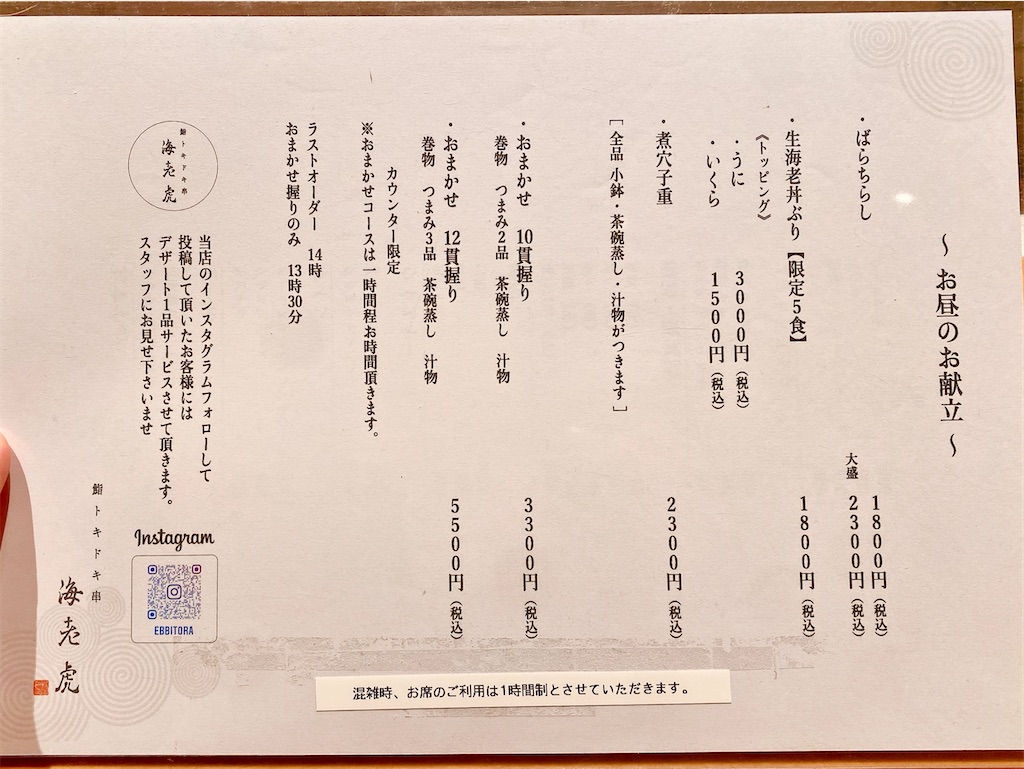 ～お昼のお献立～
・ばらちらし　1800円（税込）
大盛　2300円（税込）
・生海老丼ぶり【限定5食】　1800円（税込）
《トッピング》
・うに　3000円（税込）
・いくら　1500円（税込）
・煮穴子重　2300円（税込）
［全品 小鉢・茶碗蒸し・汁物がつきます］
・おまかせ　10貫握り　3300円（税込）
巻物　つまみ2品　茶碗蒸し　汁物
・おまかせ　12貫握り　5500円（税込）
巻物　つまみ3品　茶碗蒸し　汁物
カウンター限定
※おまかせコースは一時間程お時間頂きます。
ラストオーダー　14時
おまかせ握りのみ　13時30分
鮨トキドキ串
海老虎
当店のインスタグラムフォローして
投稿して頂いたお客様には
デザート1品サービスさせて頂きます。
スタッフにお見せ下さいませ
Instagram
EBBITORA
鮨トキドキ串
海老虎
混雑時、お席のご利用は1時間制とさせていただきます。